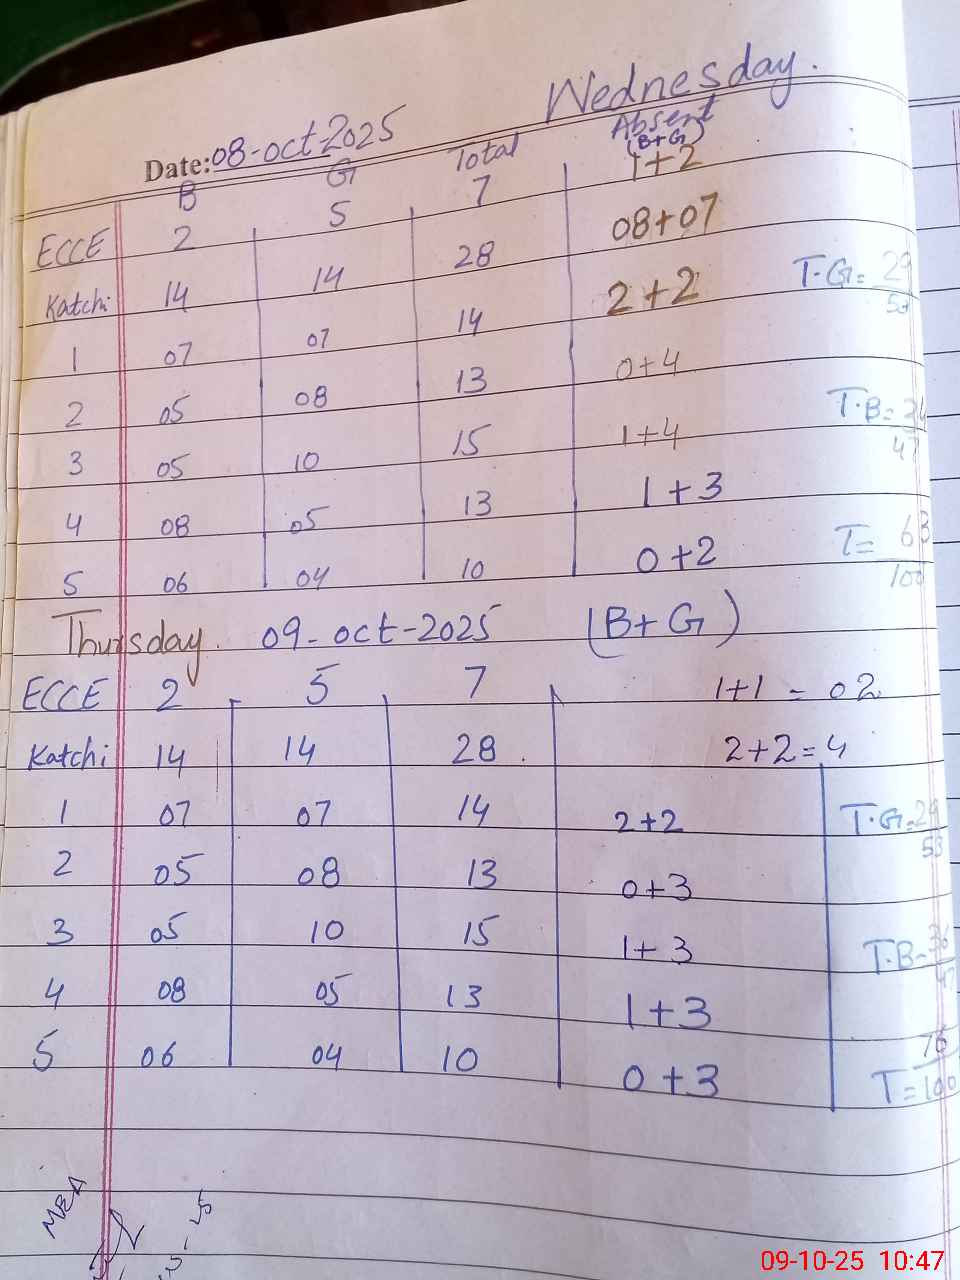 Wednesday.
Date: 08-oct-2025
B G Total Absent (B+G)
ECCE 2 5 7 1+2
Katchi 14 14 28 08+07
1 07 07 14 2+2
T.G= 29/53
2 05 08 13 0+4
3 05 10 15 1+4
T.B= 34/47
4 08 05 13 1+3
5 06 04 10 0+2
T= 63/100
Thursday. 09-oct-2025 (B+G)
ECCE 2 5 7 1+1 = 02
Katchi 14 14 28 2+2=4
1 07 07 14 2+2
T.G=
2 05 08 13 0+3
3 05 10 15 1+3
T.B=
4 08 05 13 1+3
5 06 04 10 0+3
T= 76/100
MEA
09-10-25 10:47